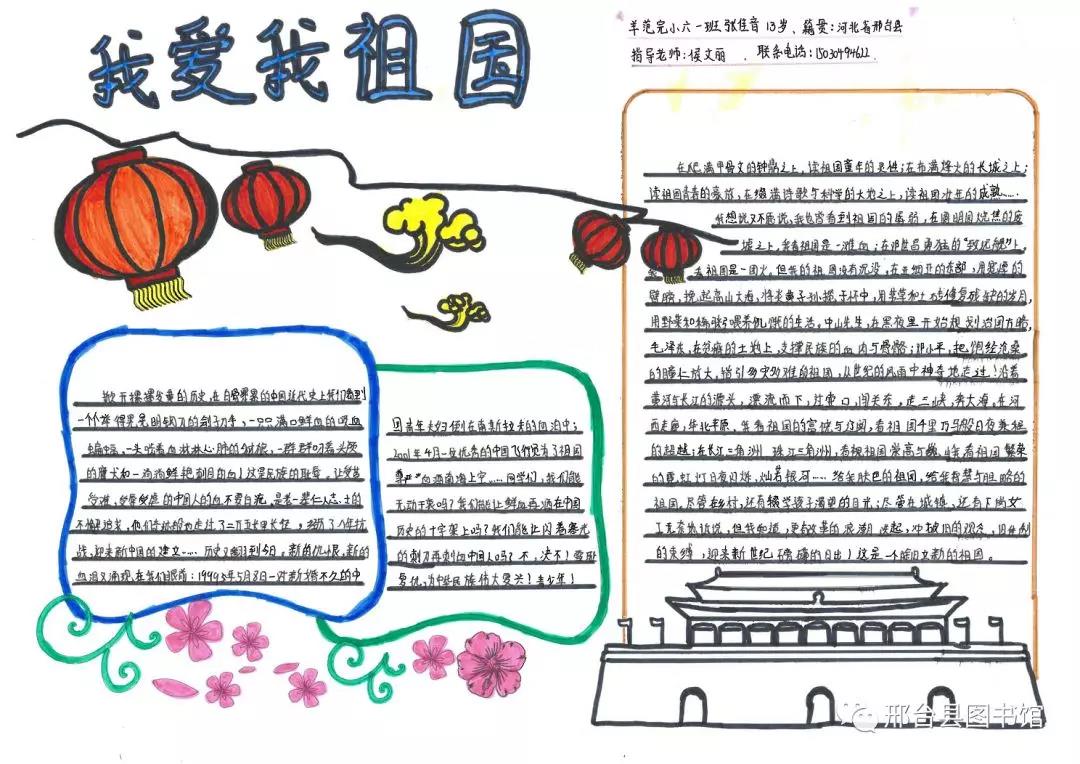 我爱我祖国
羊范完小六一班 张佳音 13岁、籍贯:河北省邢台县
指导老师:侯文丽 、联系电话:15030794622
在爬满甲骨文的钟鼎之上,读祖国童年的灵性;在布满烽火的长城之上;
读祖国青春的豪放,在缀满诗歌与科学的大地之上,读祖国壮年的成熟……
我想说又不愿说,我也曾看到祖国的孱弱,在圆明园烧焦的废
墟之上,祖国是一滩血;在邓世昌勇猛的"致远舰"上,
祖国是一团火。但我的祖国没有沉没,在亚细亚的东部,用宽厚的
臂膀,挽起高山大海,将炎黄子孙揽于怀中,用茅草和土砖修复残缺的岁月,
用野菜和稀粥喂养饥饿的生活。中山先生,在黑夜里开始规划治国方略,
毛泽东,在贫瘠的土地上,支撑民族的血肉与骨骼;邓小平,把饱经沧桑
的瞳仁放大,指引多灾多难的祖国,从世纪的风雨中神奇地走过!沿着
黄河与长江的源头,漂流而下,过壶口,闯关东,走三峡,奔大海,在河
西走廊,华北平原,看祖国的富饶与辽阔,看祖国千里万马般日夜兼程
的超越;在长江三角洲,珠江三角洲,看祖国崇高与巍峨祖国繁荣
的霓虹灯日夜闪烁,灿若银河……给我肤色的祖国,给我智慧与胆略的
祖国,尽管在乡村,还有辍学孩子渴望的目光;尽管在城镇,还有下岗女
工诉说,但我知道,更有改革的浪潮迭起,冲破旧的观念,旧体制
的束缚,迎来新世纪磅礴的日出!这是一个崭新的祖国。
掀开摞摞发黄的历史,在白骨累累的中国近代史上我们看到
一个个举得晃晃明钢刀的刽子手,一只只满口鲜血的吸血
蝙蝠,一头吃着血淋淋心肺的豺狼,一群群叼着头颅
的魔犬和一滴滴鲜艳刺目的血!这是民族的耻辱,让受苦
受难,的中国人的血不要白流,是老一辈仁人志士的
不懈追求,他们走过了二万五千里长征,经历了八年抗
战,迎来新中国的建立……历史又翻到今日,新的仇恨,新的
血泪又涌现在我们眼前:1999年5月8日一对新婚不久的中
国青年夫妇倒在南斯拉夫的血泊中;
2001年4月一位优秀的中国飞行员为了祖国
尊严血洒南海上空……同学们,我们能
无动于衷吗?我们能让鲜血再洒在中国
历史的十字架上吗?我们能让闪着寒光
的刺刀再刺向中国人吗?不,决不!要报
复仇,为中华民族伟大复兴!青少年!
邢台县图书馆